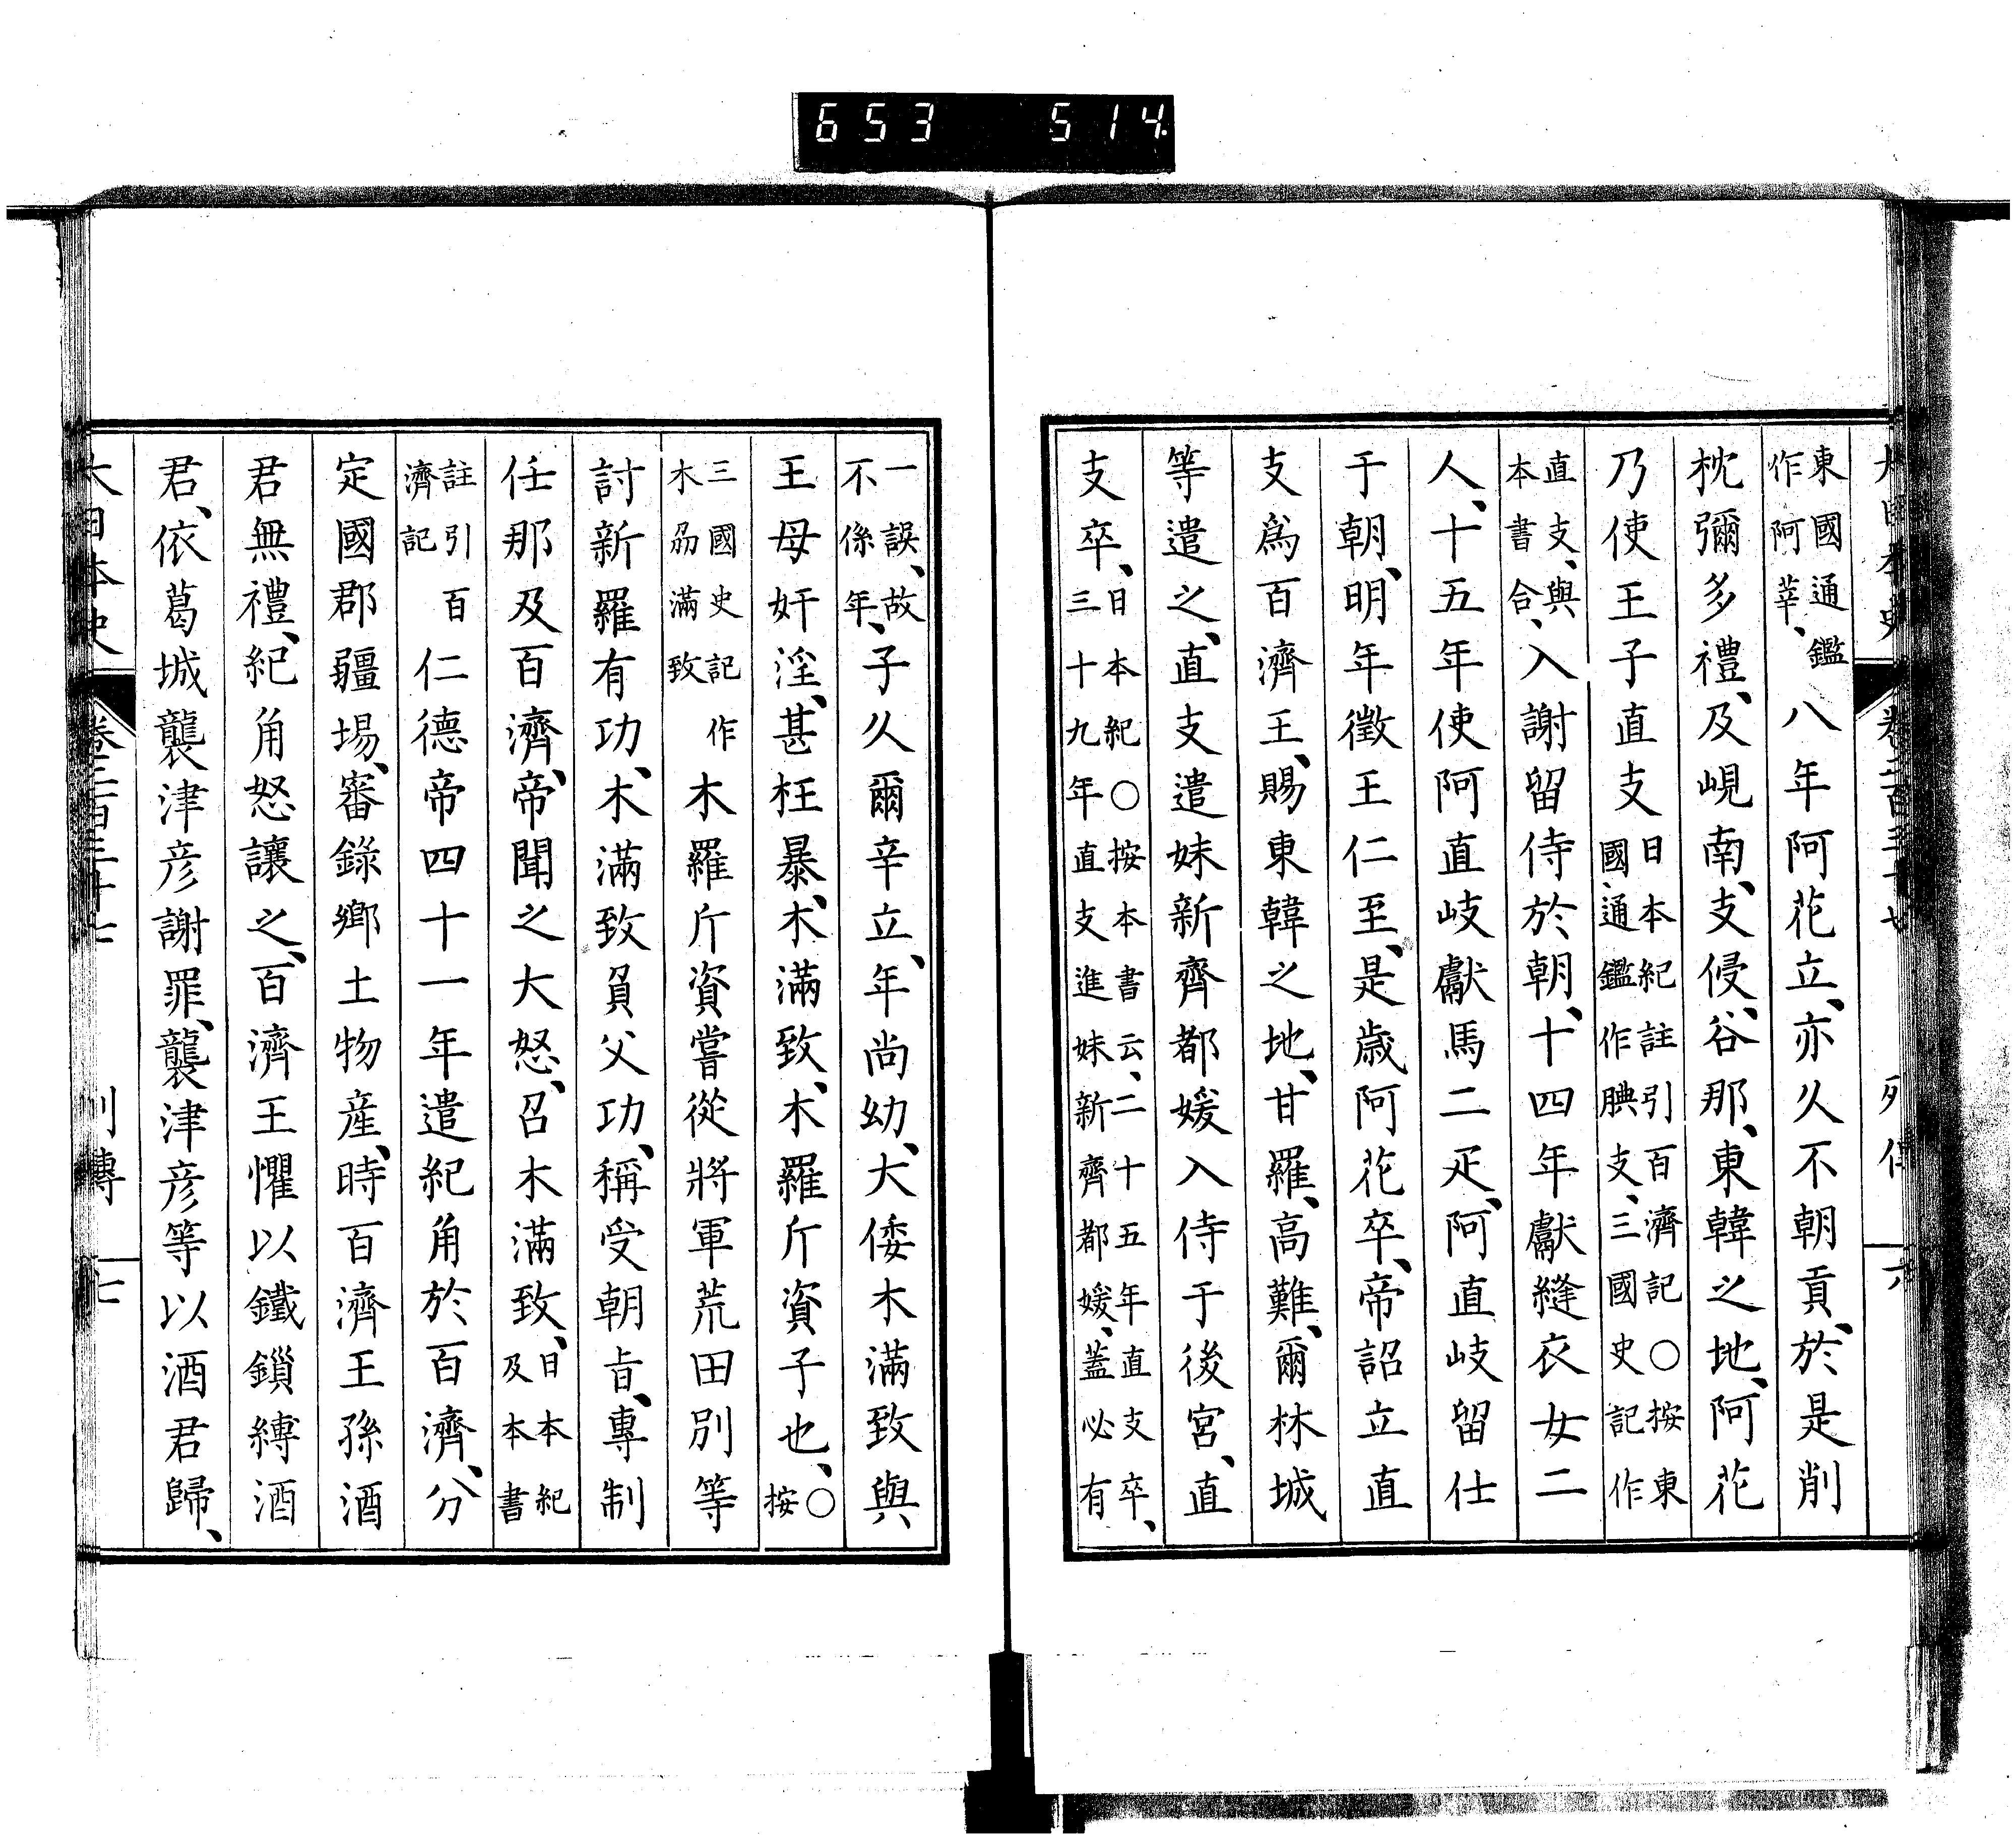 653 514
大日本史 卷二百三十七 列傳 六
東國通鑑作阿莘、八年阿花立、亦久不朝貢、於是削
枕彌多禮、及峴南、支侵、谷那、東韓之地、阿花
乃使王子直支日本紀註引百濟記○按東國通鑑作腆支、三國史記作
直支、與本書合、入謝留侍於朝、十四年獻縫衣女二
人、十五年使阿直岐獻馬二疋、阿直岐留仕
于朝、明年徵王仁至、是歳阿花卒、帝詔立直
支爲百濟王、賜東韓之地、甘羅、高難、爾林城
等遣之、直支遣妹新齊都媛入侍于後宮、直
支卒、日本紀○按本書云、二十五年直支卒、三十九年直支進妹新齊都媛、蓋必有
一誤、故不係年、子久爾辛立、年尚幼、大倭木滿致與
王母奸淫、甚枉暴、木滿致、木羅斤資子也、○按
三國史記作木刕滿致木羅斤資嘗從將軍荒田別等
討新羅有功、木滿致負父功、稱受朝旨、專制
任那及百濟、帝聞之大怒、召木滿致、日本紀及本書
註引百濟記仁德帝四十一年遣紀角於百濟、分
定國郡疆埸、審錄鄉土物產、時百濟王孫酒
君無禮、紀角怒讓之、百濟王懼以鐵鎖縛酒
君、依葛城襲津彦謝罪、襲津彦等以酒君歸、
大日本史 卷二百三十七 列傳 七